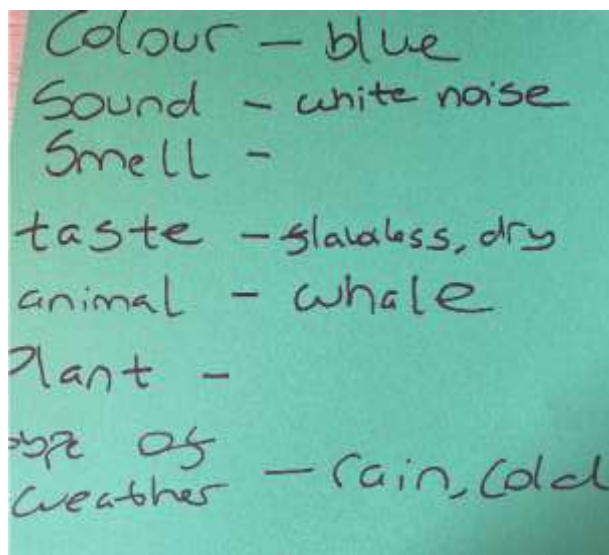 Colour - blue
Sound - white noise
Smell -
taste - , dry
animal - whale
Plant -
of
weather - rain, cold